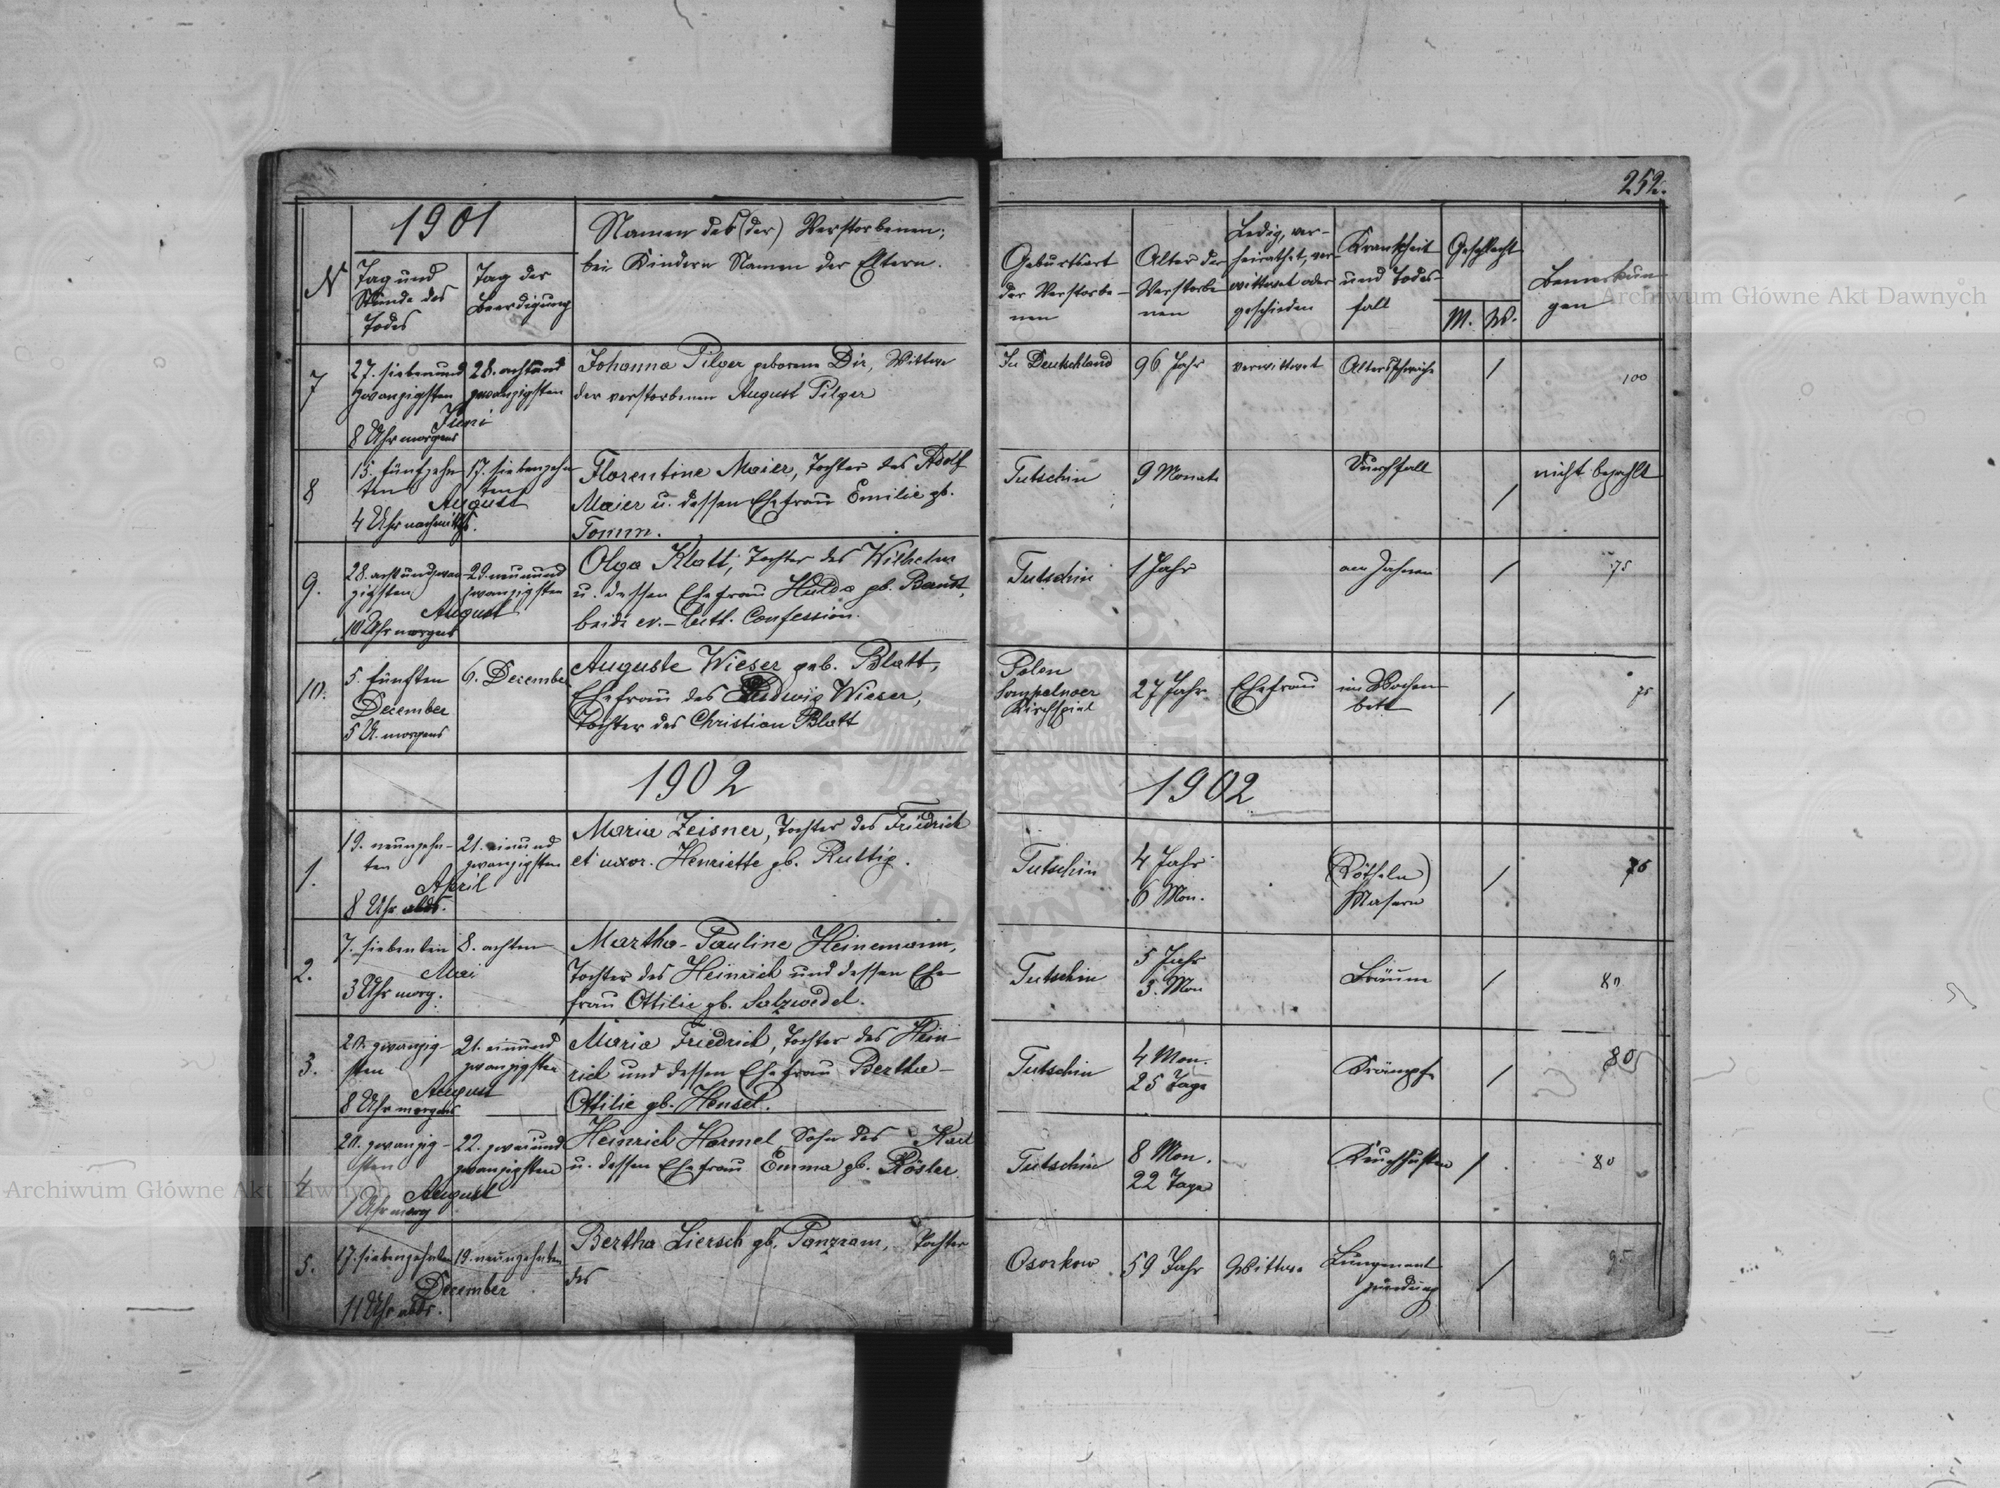 252.
1901
N
Tag und
Stunde des
Todes
Tag der
Beerdigung
Namen des (der) Verstorbenen;
bei Kindern Namen der Eltern.
Geburtsort
der Verstorbe-
nen
Alter der
Verstorbe
nen
Ledig, ver-
heirathet, ver-
wittwet oder
geschieden
Krankheit
und Todes-
fall
Geschlecht
M. W.
Bemerkun-
gen
7
27. siebenund
zwanzigsten
Juni
8 Uhr morgens
28. achtund
zwanzigsten
Johanna Pilger geborene Dir, Wittwe
der verstorbenen August Pilger
In Deutschland
96 Jahr
verwittwet
Altersschwäche
/
100
8
15. fünfzehn
ten
August
4 Uhr nachmittgs.
17. siebenzehn
ten
Florentine Maier, Tochter des Adolf
Maier u. dessen Ehefrau Emilie gb.
Tomm.
Tutschin
9 Monate
Durchfall
/
nicht bezahlt
9.
28. achtundzwan-
zigsten
August
10 Uhr morgens
29. neunund
zwanzigsten
Olga Klatt, Tochter des Wilhelm
u. dessen Ehefrau Hulda gb. Bandt,
beide ev.-luth. Confession.
Tutschin
1 Jahr
am Zahnen
/
75
10.
5. fünften
December
5 U. morgens
6. December
Auguste Wieser geb. Blatt,
Ehefrau des Ludwig Wieser,
Tochter des Christian Blatt
Polen
Sompelnoer
Kirchspiel
27 Jahr
Ehefrau
im Wochen
bett
/
75
1902
1902
1.
19. neunzehn-
ten
April
8 Uhr abds.
21. einund
zwanzigsten
Maria Zeisner, Tochter des Friedrich
et uxor. Henriette gb. Ruttig.
Tutschin
4 Jahr
6 Mon.
(Rötheln)
Masern
/
75
2.
7. siebenten
Mai
3 Uhr morg.
8. achten
Martha-Pauline Heinemann,
Tochter des Heinrich und dessen Ehe-
frau Ottilie gb. Salzwedel.
Tutschin
5 Jahr
3. Mon
Bräune
/
80
3.
20. zwanzig-
sten
August
8 Uhr morgens
21. einund
zwanzigsten
Maria Friedrich, Tochter des Hein-
rich und dessen Ehefrau Bertha-
Ottilie gb. Hensel.
Tutschin
4 Mon.
25 Tage
Krämpfe
/
80
4
20. zwanzig-
sten
August
1 Uhr morg
22. zweiund
zwanzigsten
Heinrich Harmel, Sohn des Karl
u. dessen Ehefrau Emma gb. Rösler.
Tutschin
8 Mon.
22 Tage
Keuchhusten
/
80
5.
17. siebenzehnten
December
11 Uhr abds.
19. neunzehnten
Bertha Liersch gb. Panzram, Tochter
des
Osorkow
59 Jahr
Wittwe
Lungenent
zündung
/
95
Archiwum Główne Akt Dawnych
Archiwum Główne Akt Dawnych